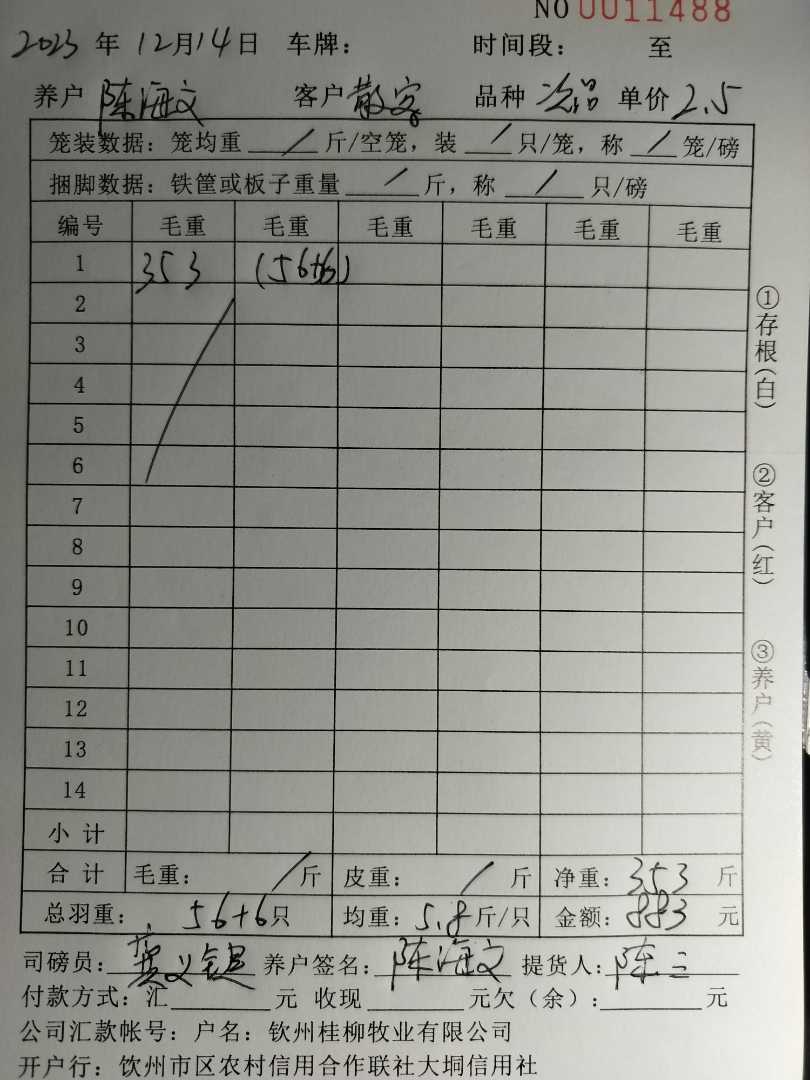 NO 0011488
2023 年 12月14日 车牌: 时间段: 至
养户 陈海文 客户 散客 品种 次品 单价 2.5
笼装数据: 笼均重 / 斤/空笼, 装 / 只/笼, 称 / 笼/磅
捆脚数据: 铁筐或板子重量 / 斤, 称 / 只/磅
编号 毛重 毛重 毛重 毛重 毛重 毛重
1 353 (56+6)
2
3
4
5
6
7
8
9
10
11
12
13
14
小计
合计 毛重: / 斤 皮重: / 斤 净重: 353 斤
总羽重: 56+6只 均重: 5.8斤/只 金额: 883 元
司磅员: 养户签名: 陈海文 提货人: 陈三
付款方式: 汇 元 收现 元欠(余): 元
公司汇款帐号: 户名: 钦州桂柳牧业有限公司
开户行: 饮州市区农村信用合作联社大垌信用社
①存根(白)
②客户(红)
③养户(黄)